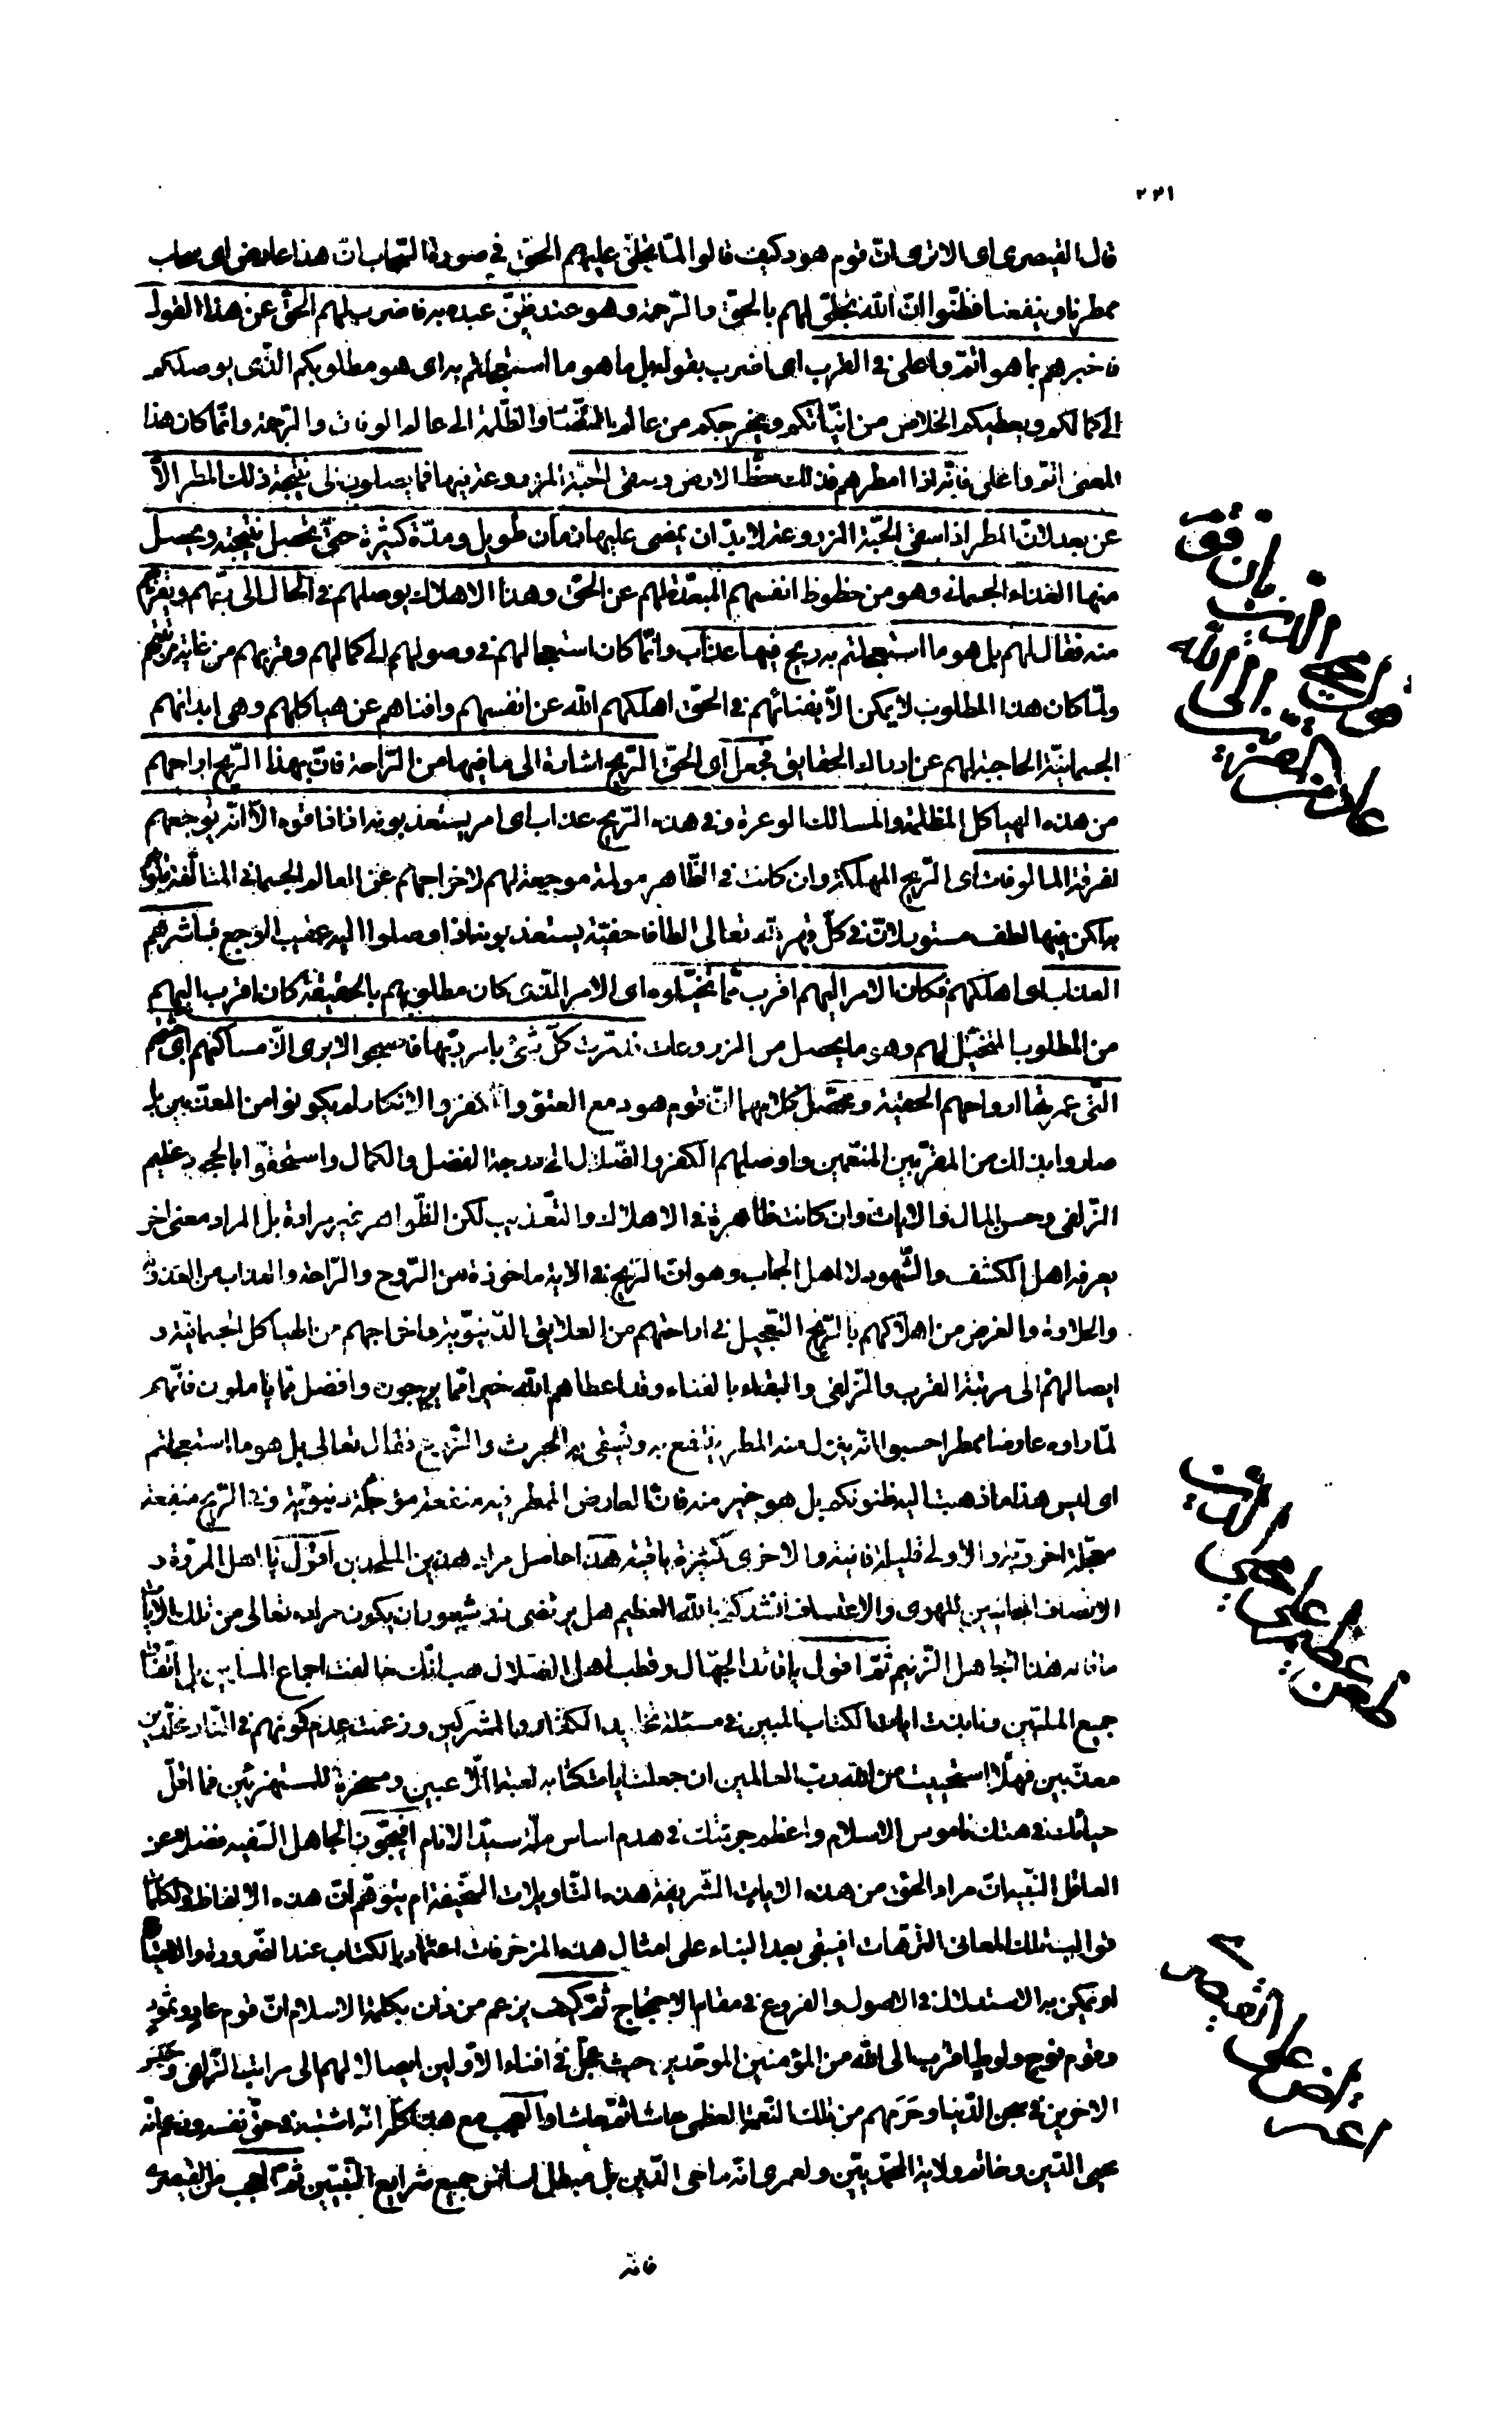 ٢٢١
قال القيصرى اى الا ترى انّ قوم هود كيف قالوا لمّا تجلّى عليهم الحقّ فى صورة السّحاب انّ هذا عارض اى سحاب
ممطرنا وينفعنا فظنّوا انّ الله تجلّى لهم بالحقّ والرّحمة وهو عند ظنّ عبده به فاضرب لهم الحقّ عن هذا القول
فاخبرهم بما هو اتمّ واعلى فى القرب اى اضرب بقوله بل ما هو ما استعجلتم به اى هو مطلوبكم الّذى يوصلكم
الى كمالكم ويعطيكم الخلاص من انيّاتكم ويخرجكم من عالم التّضادّ والظّلمة الى عالم الوفاق والرّحمة وانّما كان هذا
المعنى اتمّ واعلى فانّه اذا امطرهم فذلك حظّ الارض وسقى الحبّة المزروعة فيها فما يصلون الى نتيجة ذلك المطر الّا
عن بعد لانّ المطر اذا سقى الحبّة المزروعة لا بدّ ان يمضى عليها زمان طويل ومدّة كثيرة حتّى تحصل نتيجته ويحصل
منها الغذاء الجسمانى وهو من حظوظ انفسهم المبعّدة لهم عن الحقّ وهذا الاهلاك يوصلهم فى الحال الى ربّهم ويقرّبهم
منه فقال لهم بل هو ما استعجلتم به ريح فيها عذاب وانّما كان استعجالهم فى وصولهم الى كمالهم وقربهم من غاية مرتبتهم
ولمّا كان هذا المطلوب لا يمكن الّا بفنائهم فى الحقّ اهلكهم الله عن انفسهم وافناهم عن هياكلهم وهى ابدانهم
الجسمانيّة الحاجبة لهم عن ادراك الحقايق فجعل اى الحقّ الرّيح اشارة الى ما فيها من الرّاحة فانّ بهذا الرّيح اراحهم
من هذه الهياكل المظلمة والمسالك الوعرة وفى هذه الرّيح عذاب اى امر يستعذبونه اذا ذاقوه الّا انّه يوجعهم
لفرقة المالوفات اى الرّيح المهلكة وان كانت فى الظّاهر مولمة موجعة لهم لاخراجهم عن العالم الجسمانى المتالّفة قلوبهم
به لكن فيها لطف مستور لانّ فى كلّ قهر لله تعالى الطافا خفيّة يستعذبونه اذا وصلوا اليه عقيب الوجع فباشرهم
العذاب اى اهلكهم فكان الامر اليهم اقرب ممّا تخيّلوه اى الامر الّذى كان مطلوبهم بالحقيقة كان اقرب اليهم
من المطلوب المتخيّل لهم وهو ما يحصل من المزروعات فدمّرت كلّ شئ بامر ربّها فاصبحوا لا يرى الّا مساكنهم اى جثثهم
الّتى عمرتها ارواحهم الحقيّة ومحصّل كلامهما انّ قوم هود مع العتوّ والكفر والانكار لم يكونوا من المعذّبين بل
صاروا بذلك من المقرّبين المنعّمين واوصلهم الكفر والضّلال الى درجة الفضل والكمال واستحقّوا بالجحود عظيم
الزّلفى وحسن المال والايات وان كانت ظاهرة فى الاهلاك والتّعذيب لكن الظّواهر غير مرادة بل المراد معنى اخر
يعرفه اهل الكشف والشّهود لا اهل الحجاب وهو انّ الرّيح فى الاية ماخوذة من الرّوح والرّاحة والعذاب من العذوبة
والحلاوة والغرض من اهلاكهم بالرّيح التّعجيل فى اراحتهم من العلايق الدّنيويّة واخراجهم من الهياكل الجسمانيّة و
ايصالهم الى مرتبة القرب والزّلفى والبقاء بالفناء وقد اعطاهم الله خيرا ممّا يرجون وافضل ممّا ياملون فانّهم
لمّا راوه عارضا ممطرا حسبوا انّه ينزل منه المطر ينتفع به ويسقى به الحرث والزّرع فقال تعالى بل هو ما استعجلتم
اى ليس هذا ما ذهبت اليه ظنونكم بل هو خير منه فانّ العارض الممطر فيه منفعة مؤجّلة دنيويّة وفى الرّيح منفعة
معجّلة اخرويّة والاولى قليلة فانية والاخرى كثيرة باقية هذا حاصل مراد هذين الملحدين اقول يا اهل المروّة و
الانصاف المجانبين للهوى والاعتساف انشدكم بالله العظيم هل يرتضى ذو شعور ان يكون مراده تعالى من تلك الايات
ما قاله هذا الجاهل الزّنيم ثمّ اقول يا قائد الجهّال وقطب اهل الضّلال هب انّك خالفت اجماع المسلمين بل اتّفاق
جميع الملّيّين ونابذت ايات الكتاب المبين فى مسئلة تخليد الكفّار والمشركين وزعمت عدم كونهم فى النّار مخلّدين
معذّبين فهلّا استحييت من الله ربّ العالمين ان جعلت ايات كتابه لعبة الّلاعبين ومسخرة للمستهزئين فما اقلّ
حيائك فى هتك ناموس الاسلام واعظم جرئتك فى هدم اساس ملّة سيّد الانام افيجوّز الجاهل السّفيه فضلا عن
العاقل النّبيه انّ مراد الحقّ من هذه الايات الشّريفة هذه التّاويلات السّخيفة ام يتوهّم انّ هذه الالفاظ والكلمات
قوالب تلك المعانى التّرّهات افيبقى بعد البناء على امثال هذه المزخرفات اعتماد بالكتاب عند الضّرورة والاحتياج
او يمكن به الاستدلال فى الاصول والفروع فى مقام الاحتجاج ثمّ كيف يزعم من دان بكلمة الاسلام انّ قوم عاد وثمود
وقوم نوح ولوط اقرب الى الله من المؤمنين الموحّدين حيث عجّل فى افناء الاوّلين ايصالا لهم الى مراتب الزّلفى وحبس
الاخرين فى سجن الدّنيا وحرمهم من تلك النّعمة العظمى حاشا ثمّ حاشا والعجب مع هذا كلّه انّه اشتبه فى حقّ نفسه وزعم انّه
محيى الدّين وخاتم ولاية المحمّديّين ولعمرى انّه ماحى الدّين بل مبطل اساس جميع شرايع النّبيّين ثمّ العجب من القيصرى
فانّه
اعتراض على القيصرى